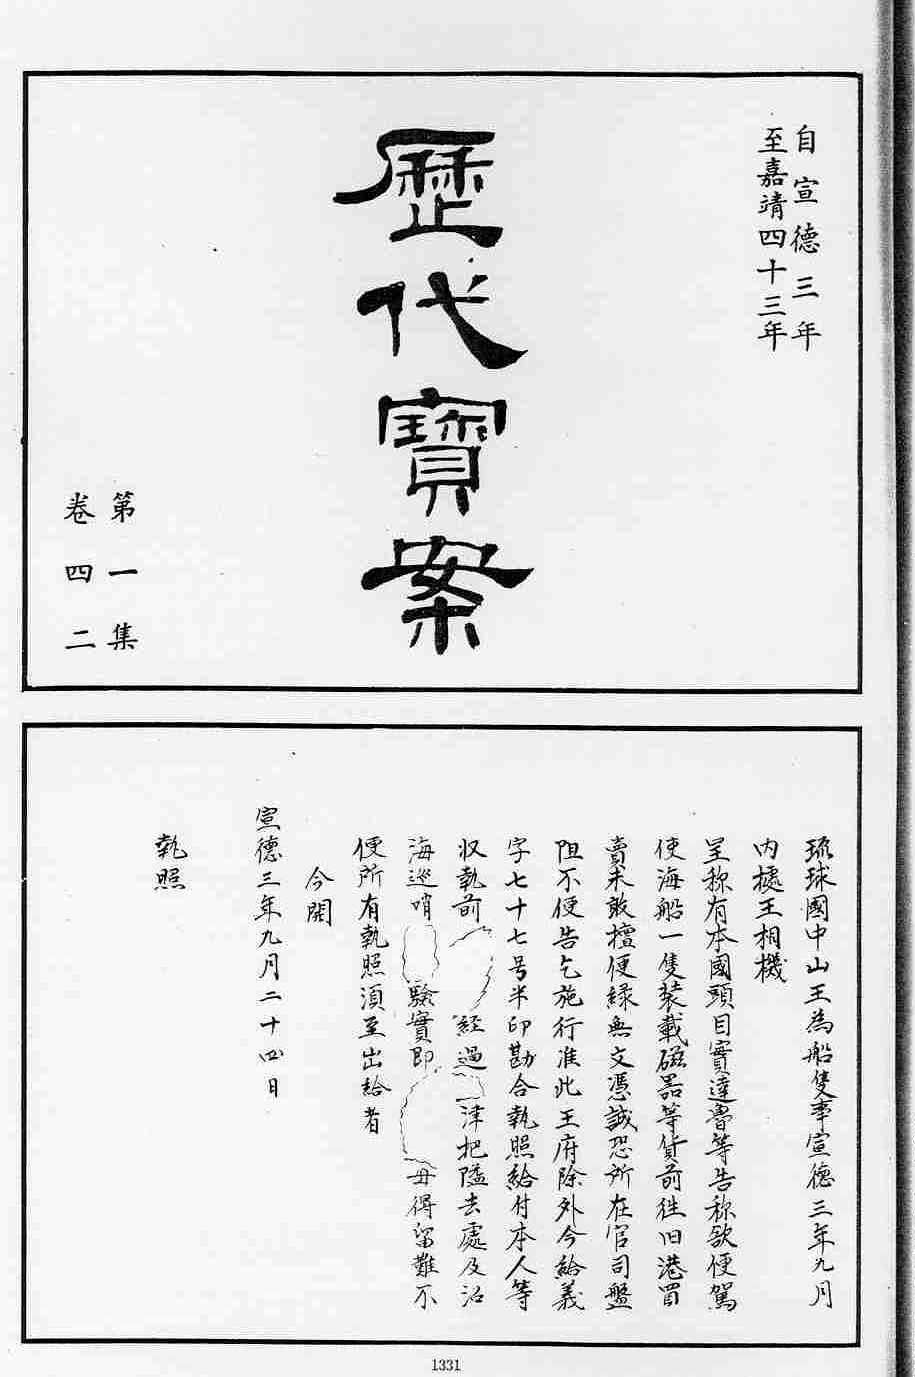 自宣德三年
至嘉靖四十三年
歷代寶案
第一集
卷四二
琉球國中山王為船隻事宣德三年九月
内據王相機
呈称有本國頭目實達魯等告称欲便駕
使海船一隻装載磁器等貨前徃旧港買
賣未敢擅便緑無文憑誠恐所在官司盤
阻不便告乞施行准此王府除外今給義
字七十七号半印勘合執照給付本人等
収執前 経過 津把隘去處及沿
海巡哨 驗實即 毋得留難不
便所有執照須至出給者
今開
宣德三年九月二十四日
執照
1331